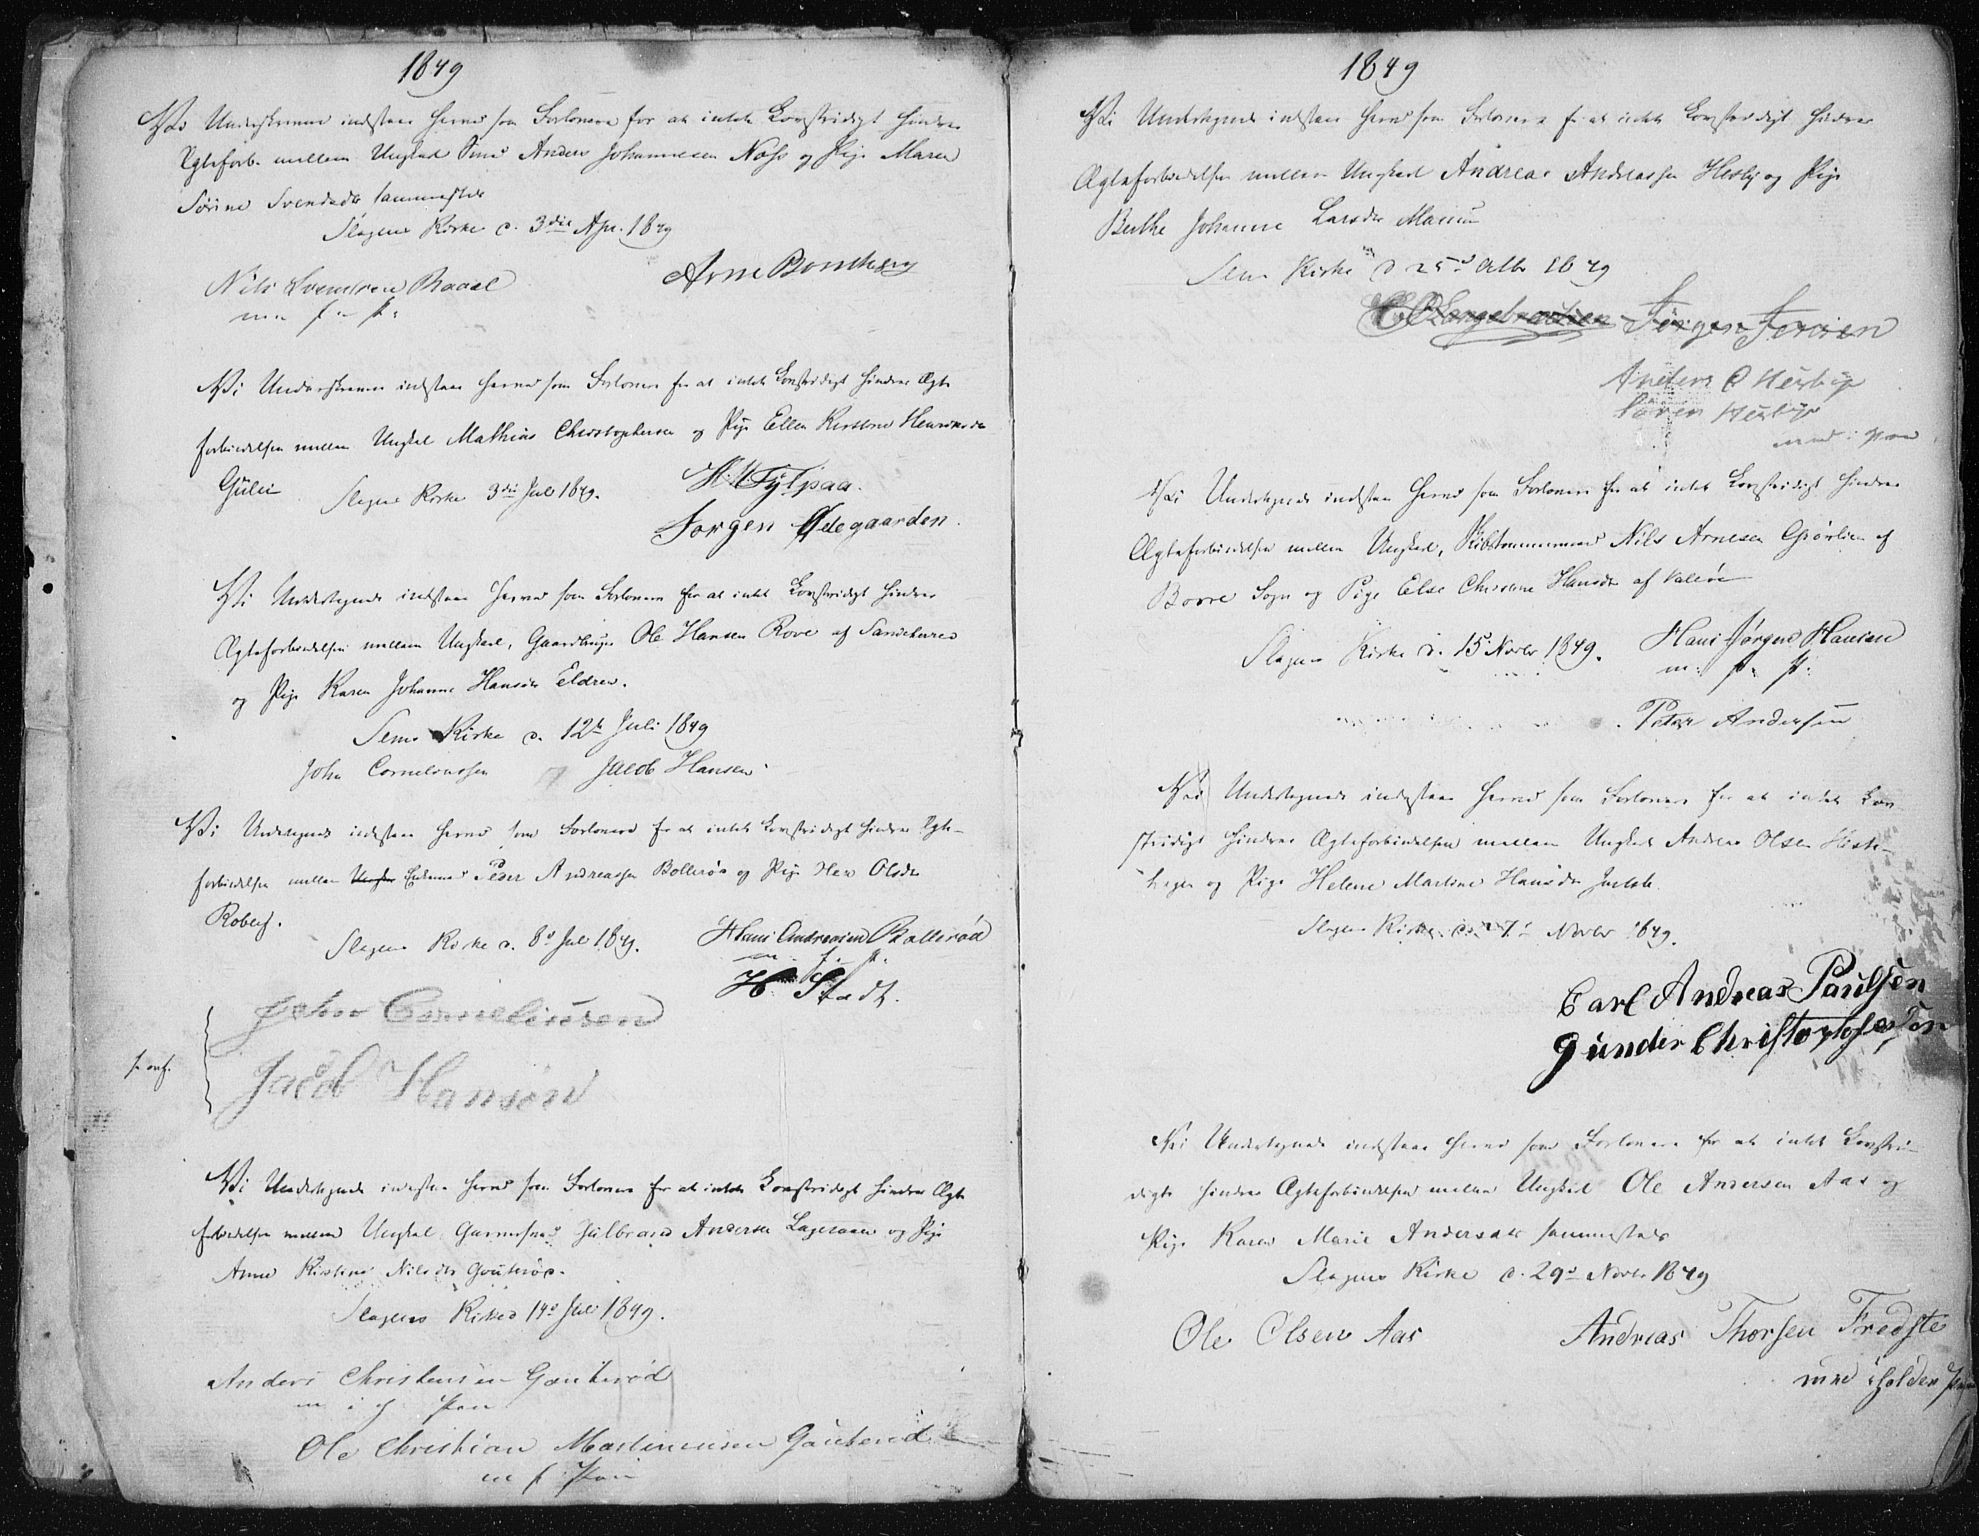 1849
Vi Underskrevne indestaae herved som Forlovere for at intet Lovstridigt hindrer
Ægteforb. mellem Ungkarl Smed Anders Johannesen Næss og Pige Maren
Sørine Svendsdtr sammesteds
Slagens Kirke d. 3die Apr. 1849
Arne Bomberg
Nils Svendsen Raael
m f P:
Vi Underskrevne indestaae herved som Forlovere for at intet Lovstridigt hindrer Ægte
forbindelsen mellem Ungkarl Mathias Christophersen og Pige Ellen Kirstine Henriksdtr
Gulei
Slagens Kirke 3die Juli 1849.
Jørgen Ødegaarden.
Vi Undertegnede indestaae herved som Forlovere for at intet Lovstridigt hindrer
Ægteforbindelsen mellem Ungkarl, Gaardbruger Ole Hansen Rove af Sandeherred
og Pige Karen Johanne Hansdtr Eldrev.
Sems Kirke d. 12te Juli 1849
John Corneliussen Jacob Hansen
Vi Undertegnede indestaae herved som Forlovere for at intet Lovstridigt hindrer Ægte-
forbindelsen mellem Ungkarl Enkemand Peder Andreassen Bollerød og Pige Olsdtr
Roberg.
Slagens Kirke d. 8de Juli 1849.
Hans Andreasen Bollerød
m. f. P.
H Stadt.
John Corneliusen
Jacob Hansen
Vi Undertegnede indestaae herved som Forlovere for at intet Lovstridigt hindrer Ægte
forbindelsen mellem Ungkarl Gulbrand Andersen og Pige
Anne Kirstine Nilsdtr Gouterød.
Slagens Kirke d 14de Juli 1849.
Anders Christensen Gouterød
m i f Pen
Ole Christian Martinusen Gauterød
m f Pen
1849
Vi Undertegnede indestaae herved som Forlovere for at intet Lovstridigt hindrer
Ægteforbindelsen mellem Ungkarl Andreas Andreassen Hesby og Pige
Berthe Johanne Larsdtr
Sems Kirke d 25de Octbr 1849
Jørgen Jersøen
Anders C Hesbye
Søren Hesbye
med i Pen
Vi Undertegnede indestaae herved som Forlovere for at intet Lovstridigt hindrer
Ægteforbindelsen mellem Ungkarl, Skibstømmermand Nils Arnesen Gjørlien af
Borre Sogn og Pige Else Christine Hansdtr af Valløe
Slagens Kirke d. 15 Novbr 1849.
Hans Jørgen Hansen
m: P: P:
Peter Andersen
Vi Undertegnede indestaae herved som Forlovere for at intet Lov
stridigt hindrer Ægteforbindelsen mellem Ungkarl Andreas Olsen Heste-
hagen og Pige Helene Martine Hansdtr
Slagens Kirke d. Novbr 1849.
Carl Andreas Paulsen
Gunder Christophersen
Vi Undertegnede indestaae herved som Forlovere for at intet Lovstri-
digt hindrer Ægteforbindelsen mellem Ungkarl Ole Andersen Aas og
Pige Karen Marie Andersdtr sammesteds
Slagens Kirke d. 29de Novbr 1849
Ole Olsen Aas
Andreas Thorsen Fredste
med iholden Pen